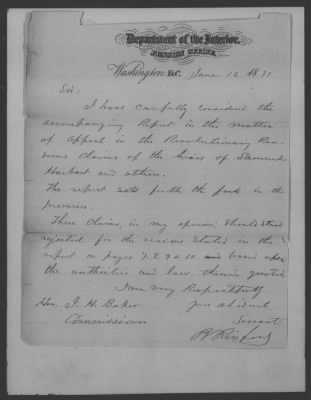 Department of the Interior,
PENSION OFFICE,
Washington, D.C. June 12 1871
Sir:
I have carefully considered the
accompanying Report in the matter
of Appeal in the Revolutionary Pen-
sions Claims of the heirs of Samuel
Harbert and others.
The report sets forth the facts in the
premises.
These Claims, in my opinion, should stand
rejected for the reasons stated in the
report on pages 7, 8, 9 & 10 and based upon
the authorities and law therein quoted
I am very Respectfully
Hon. J. H. Baker your obedient
Commissioner Servant